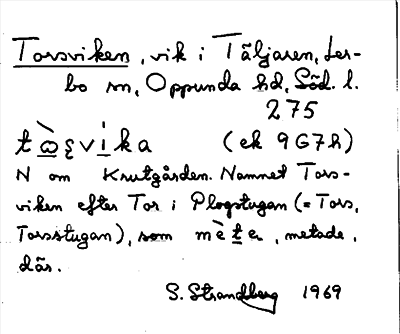 Torsviken, vik i Täljaren, Ler-
bo sn, Oppunda hd, Söd. l.
275
(ek 9G7h)
N om Krutgården. Namnet Tors-
viken efter Tor i Plogstugan (= Tors,
Torsstugan), som mètȩ, metade,
där.
S. Strandberg 1969